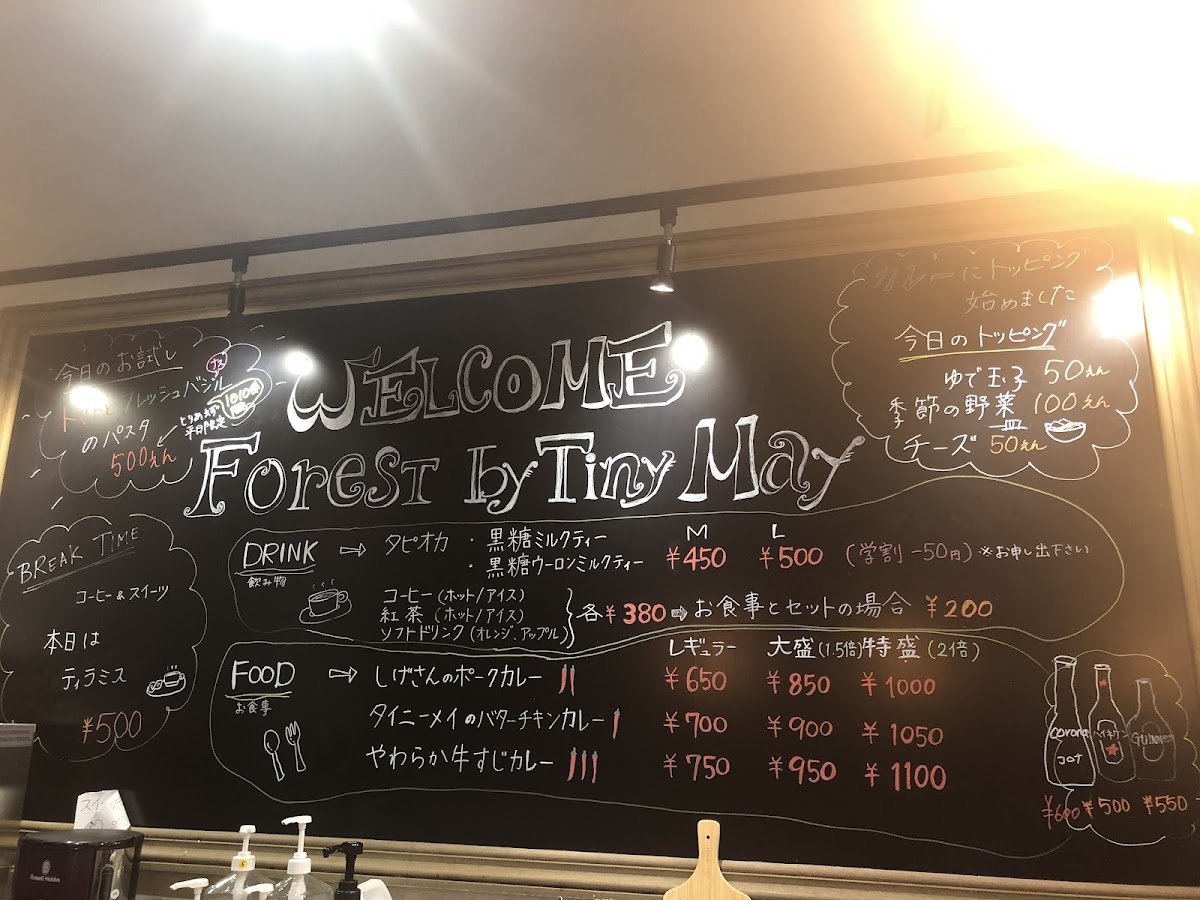 WELCOME
Forest by Tiny May
今日のお試し
フレッシュバジル
のパスタ
500えん
とりあえず
平日限定
カレーにトッピング
始めました
今日のトッピング
ゆで玉子 50えん
季節の野菜 100えん
チーズ 50えん
BREAK TIME
コーヒー&スイーツ
本日は
ティラミス
¥500
M L
DRINK ⇨ タピオカ ・黒糖ミルクティー
・黒糖ウーロンミルクティー ¥450 ¥500 (学割 -50円) ※お申し出下さい
飲み物
コーヒー(ホット/アイス)
紅茶 (ホット/アイス)
ソフトドリンク(オレンジ.アップル)
各¥380 ⇨ お食事とセットの場合 ¥200
レギュラー 大盛(1.5倍) 特盛(2倍)
FOOD ⇨ しげさんのポークカレー ¥650 ¥850 ¥1000
お食事
タイニーメイのバターチキンカレー ¥700 ¥900 ¥1050
やわらか牛すじカレー ¥750 ¥950 ¥1100
corona ハイネケン
¥600 ¥500 ¥550
Russell Hobbs